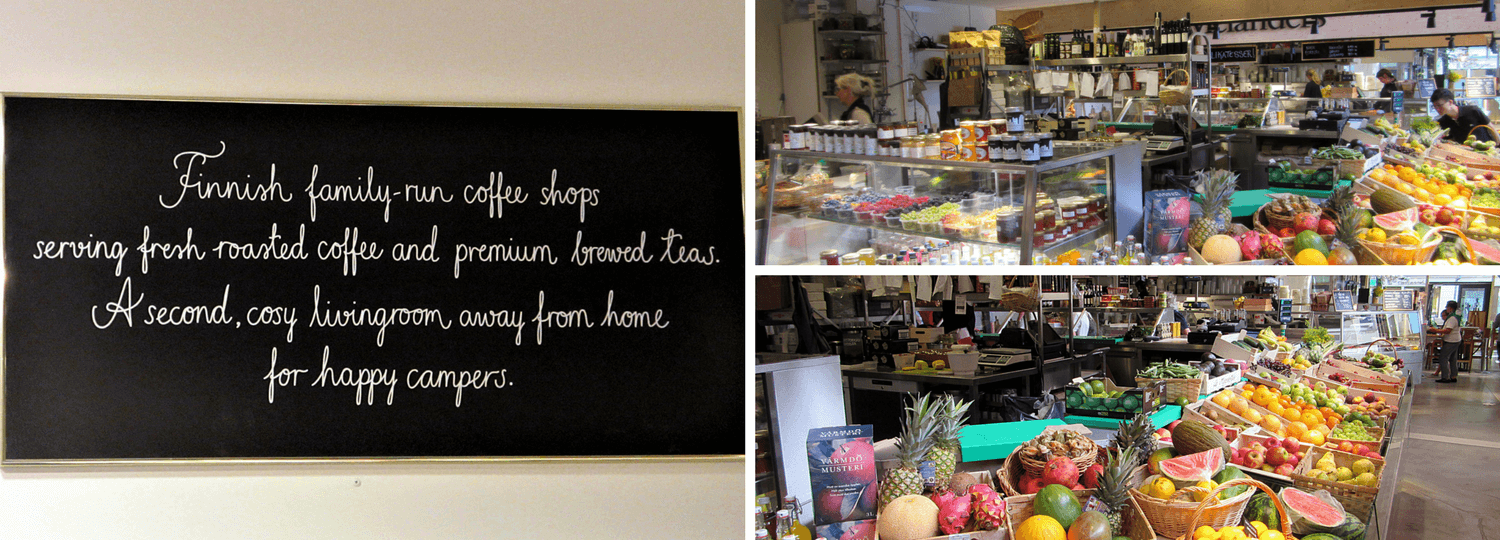 Finnish family-run coffee shops
serving fresh roasted coffee and premium brewed teas.
A second, cosy livingroom away from home
for happy campers.
Melanders
VÄRMDÖ
MUSTERI